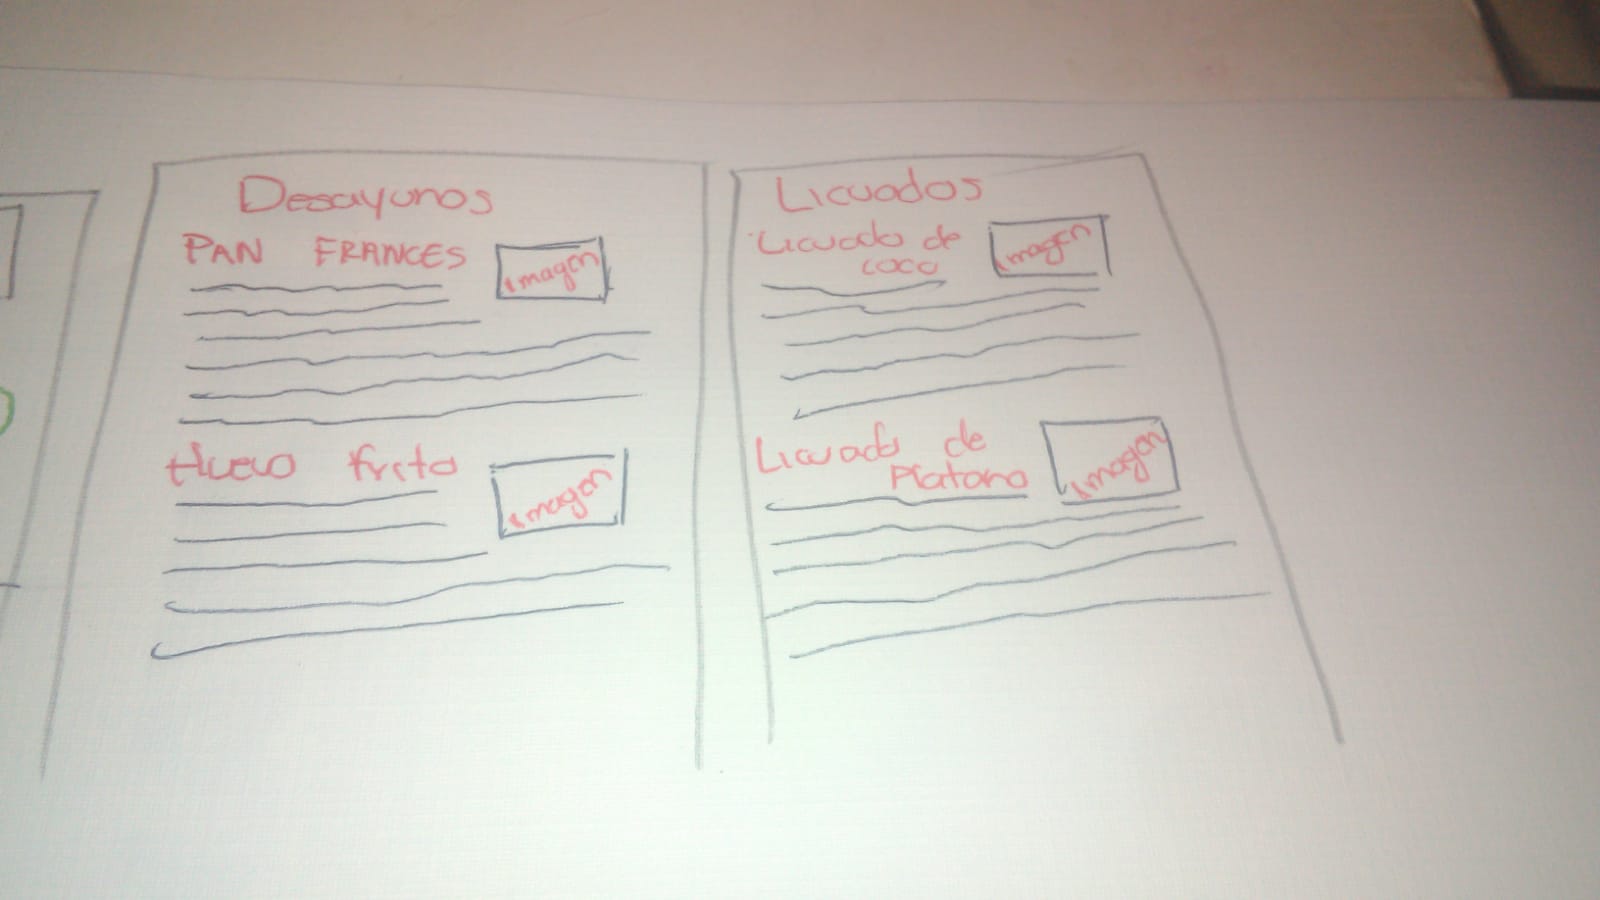 Desayunos
PAN FRANCES
Imagen
Huevo frito
Imagen
Licuados
Licuado de
coco
Imagen
Licuado de
Platano
Imagen